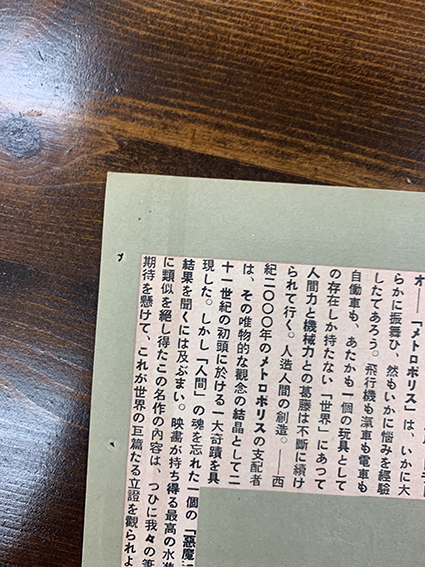 オ――「メトロポリス」は、いかに大
らかに振舞ひ、然もいかに悩みを經驗
したであろう。飛行機も滊車も電車も
自働車も、あたかも一個の玩具として
の存在しか持たない「世界」にあつて
人間力と機械力との葛藤は不斷に續け
られて行く。人造人間の創造。――西
紀二〇〇〇年のメトロポリスの支配者
は、その唯物的な觀念の結晶として二
十一世紀の初頭に於ける一大奇蹟を具
現した。しかし「人間」の魂を忘れた一個の「惡魔
結果を聞くには及ぶまい。映畵が持ち得る最高の水
に類似を絶し得たこの名作の內容は、つひに我々の筆
期待を懸けて、これが世界の巨篇たる立證を觀られよ